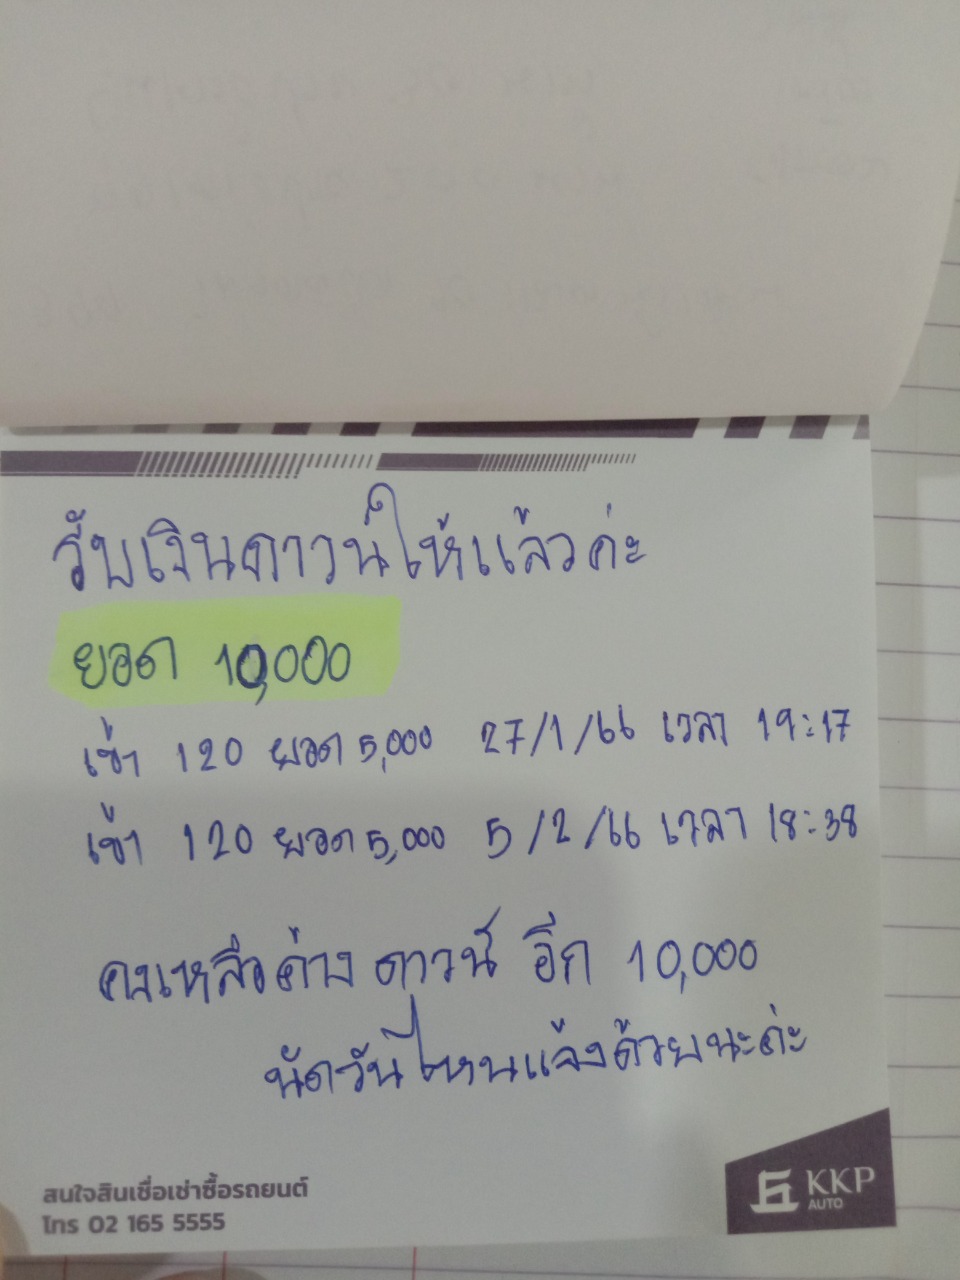 รับเงินดาวน์ให้แล้วค่ะ
ยอด 10,000
เข้า 120 ยอด 5,000 27/1/66 เวลา 19:17
เข้า 120 ยอด 5,000 5/2/66 เวลา 18:38
คงเหลือค้าง ดาวน์ อีก 10,000
นัดวันไหนแจ้งด้วยนะค่ะ
สนใจสินเชื่อเช่าซื้อรถยนต์
โทร 02 165 5555
KKP
AUTO